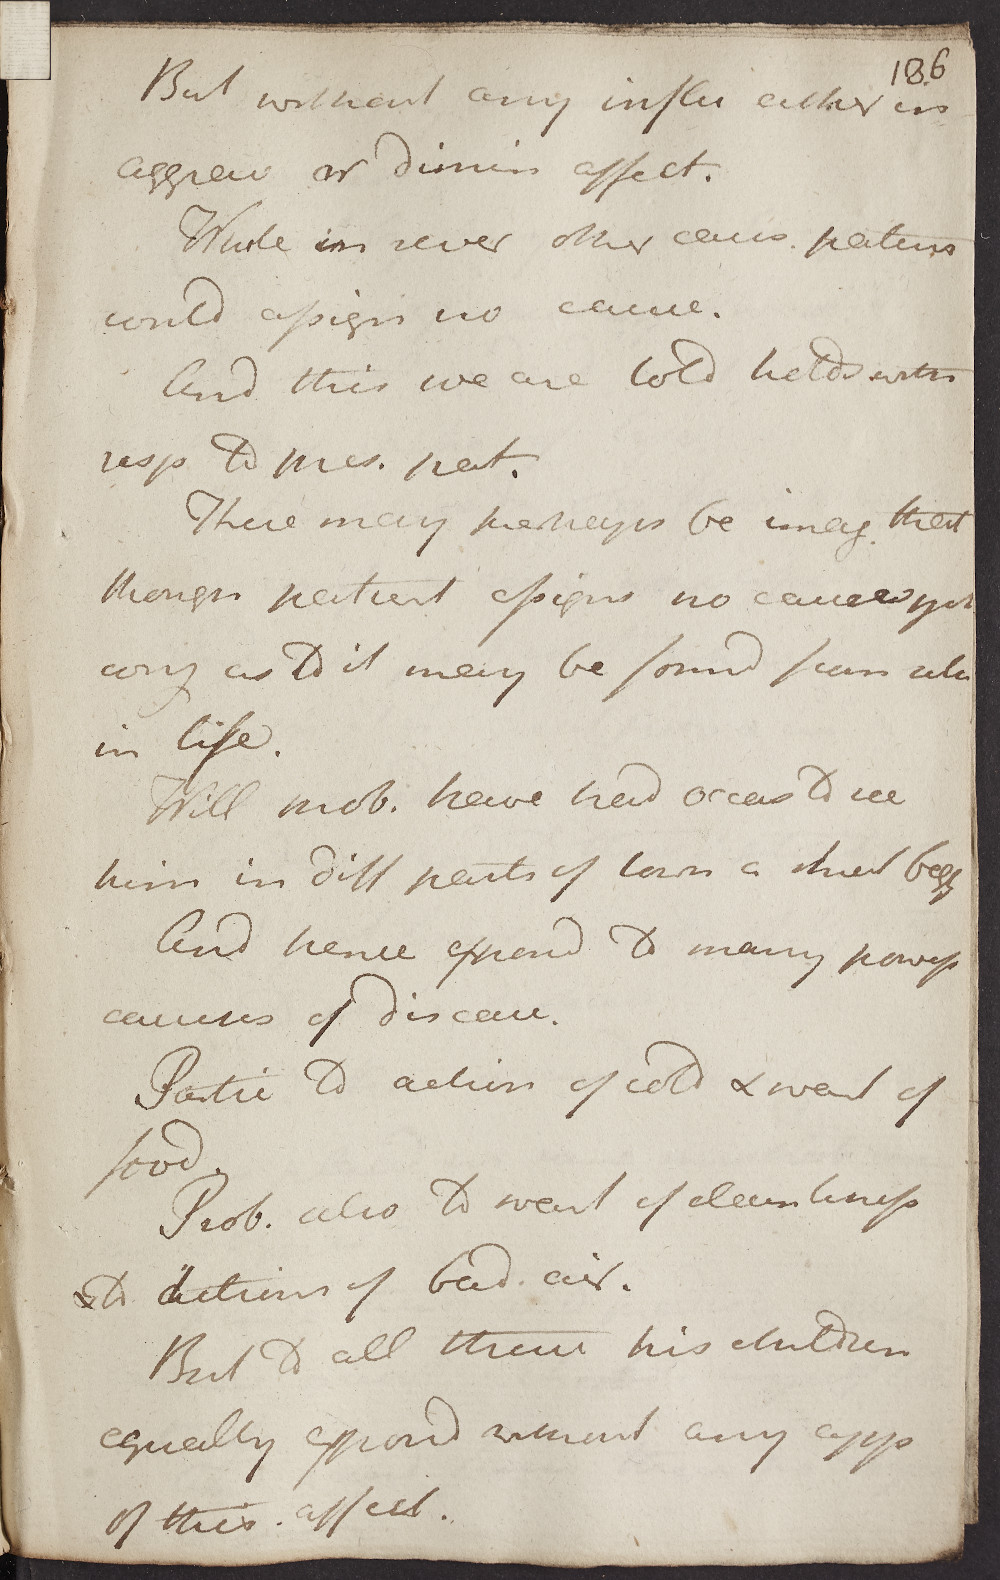 186
But without any influ either in
aggrav or dimin affect.
While in sever other cases. patients
could assign no cause.
And this we are told holds with
resp to pres. pat.
There may perhaps be imag. that
though patient assigns no cause yet
conj as to it may be found from situ
in life.
Will prob. have had occas to see
him in diff parts of town a street begg
And hence expond to many powf
causes of disease.
Partic to action of cold & want of
food.
Prob. also to want of cleanliness
& to action of bad air.
But to all these his children
equally expond without any app
of this affect.